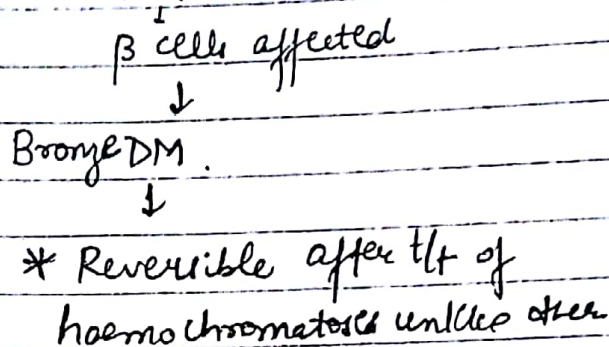 β cells affected
↓
Bronze DM.
↓
* Reversible after t/t of
haemochromatosis unlike other